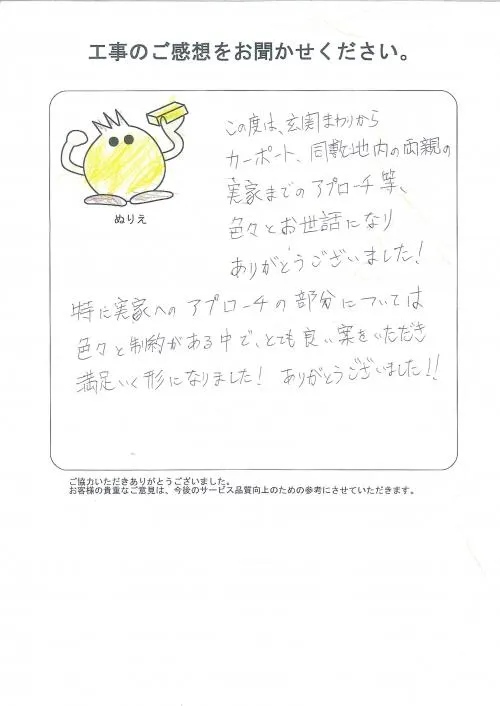 工事のご感想をお聞かせください。
この度は、玄関まわりから
カーポート、同敷地内の両親の
実家までのアプローチ等、
色々とお世話になり
ありがとうございました！
ぬりえ
特に実家へのアプローチの部分については
色々と制約がある中で、とても良い案をいただき
満足いく形になりました！ ありがとうございました!!
ご協力いただきありがとうございました。
お客様の貴重なご意見は、今後のサービス品質向上のための参考にさせていただきます。